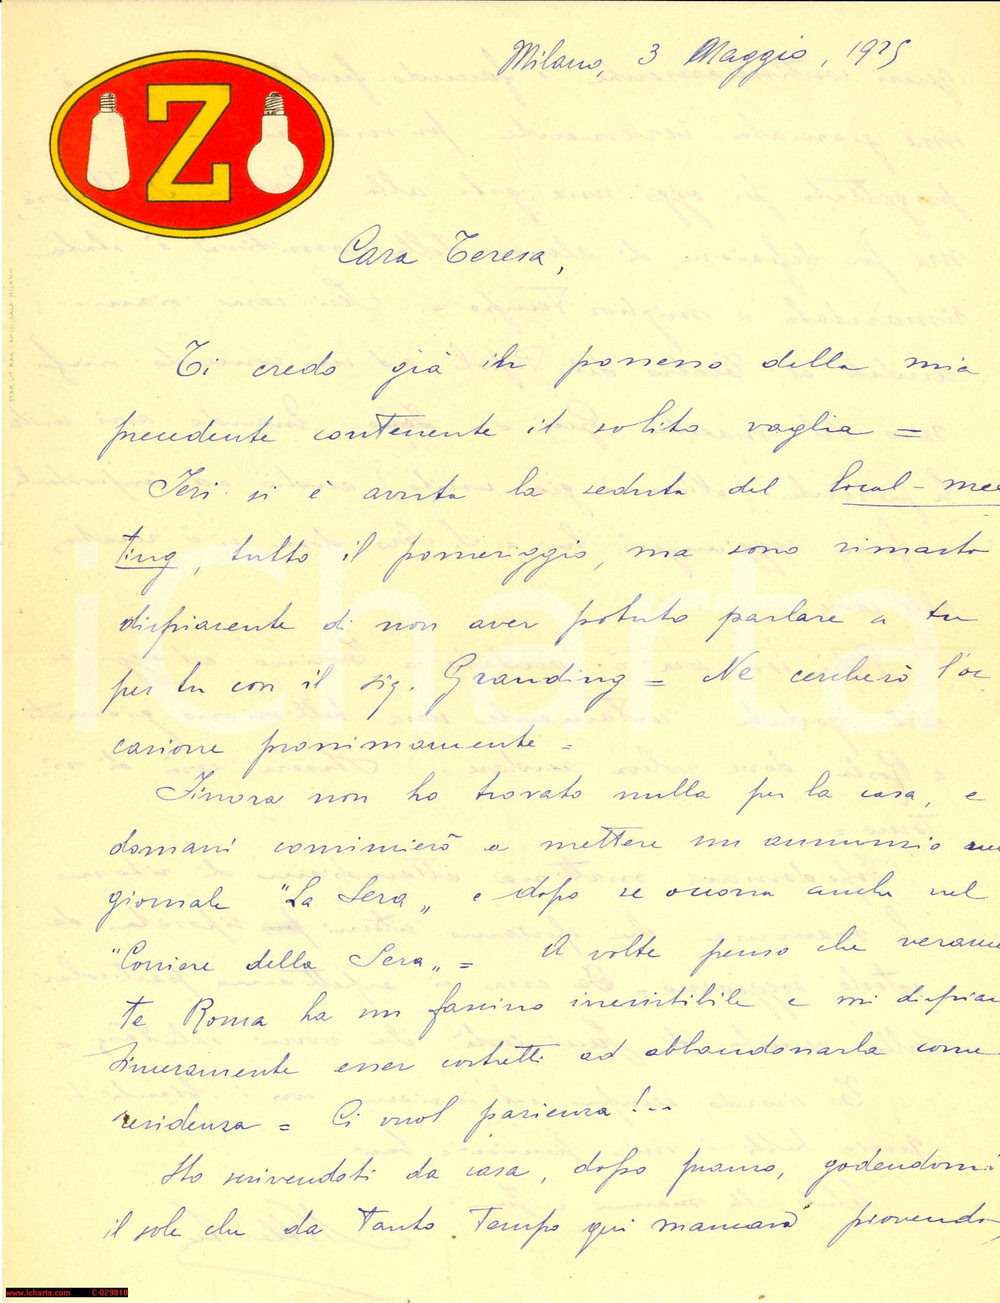 Milano, 3 Maggio, 1925
Z
Cara Teresa,
Ti credo già in possesso della mia
precedente contenente il solito vaglia =
Ieri si è avuta la seduta del local-mee
ting, tutto il pomeriggio, ma sono rimasto
dispiacente di non aver potuto parlare a tu
per tu con il sig. Granding = Ne cercherò l'oc
casione prossimamente =
Finora non ho trovato nulla per la casa, e
domani comincierò a mettere un annunzio
giornale "La Sera„ e dopo se occorra anche nel
"Corriere della Sera„ = A volte penso che verame
te Roma ha un fascino irresistibile e mi dispiac
sinceramente esser costretti ad abbandonarla come
residenza = Ci vuol pazienza!..
Sto scrivendoti da casa, dopo pranzo, godendomi
il sole che da tanto tempo qui mancava piovendo
STAB. LIT. RAG. CARLO SALA MILANO
iCharta
www.icharta.com C-029810